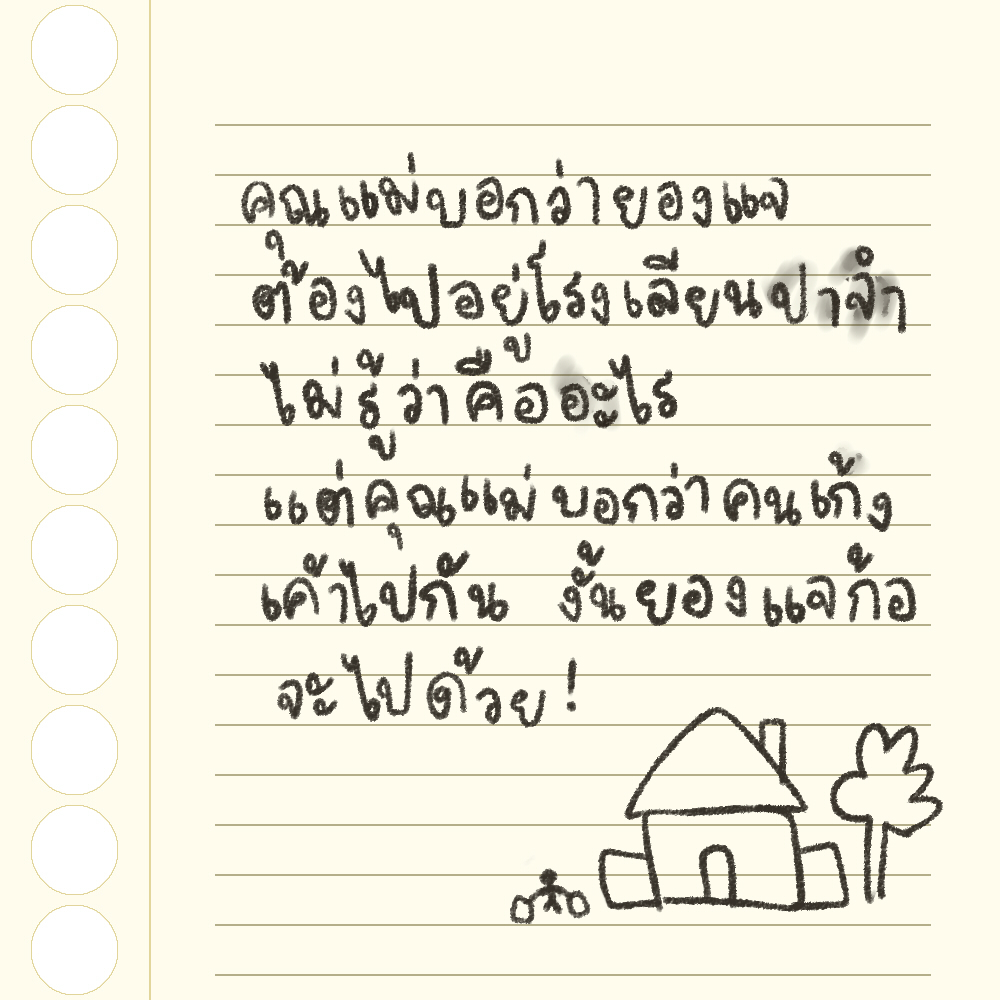 คุณแม่บอกว่ายองแจ
ต้องไปอยู่โรงเลียนปาจำ
ไม่รู้ว่าคืออะไร
แต่คุณแม่บอกว่าคนเก้ง
เค้าไปกัน งั้นยองแจก้อ
จะไปด้วย!